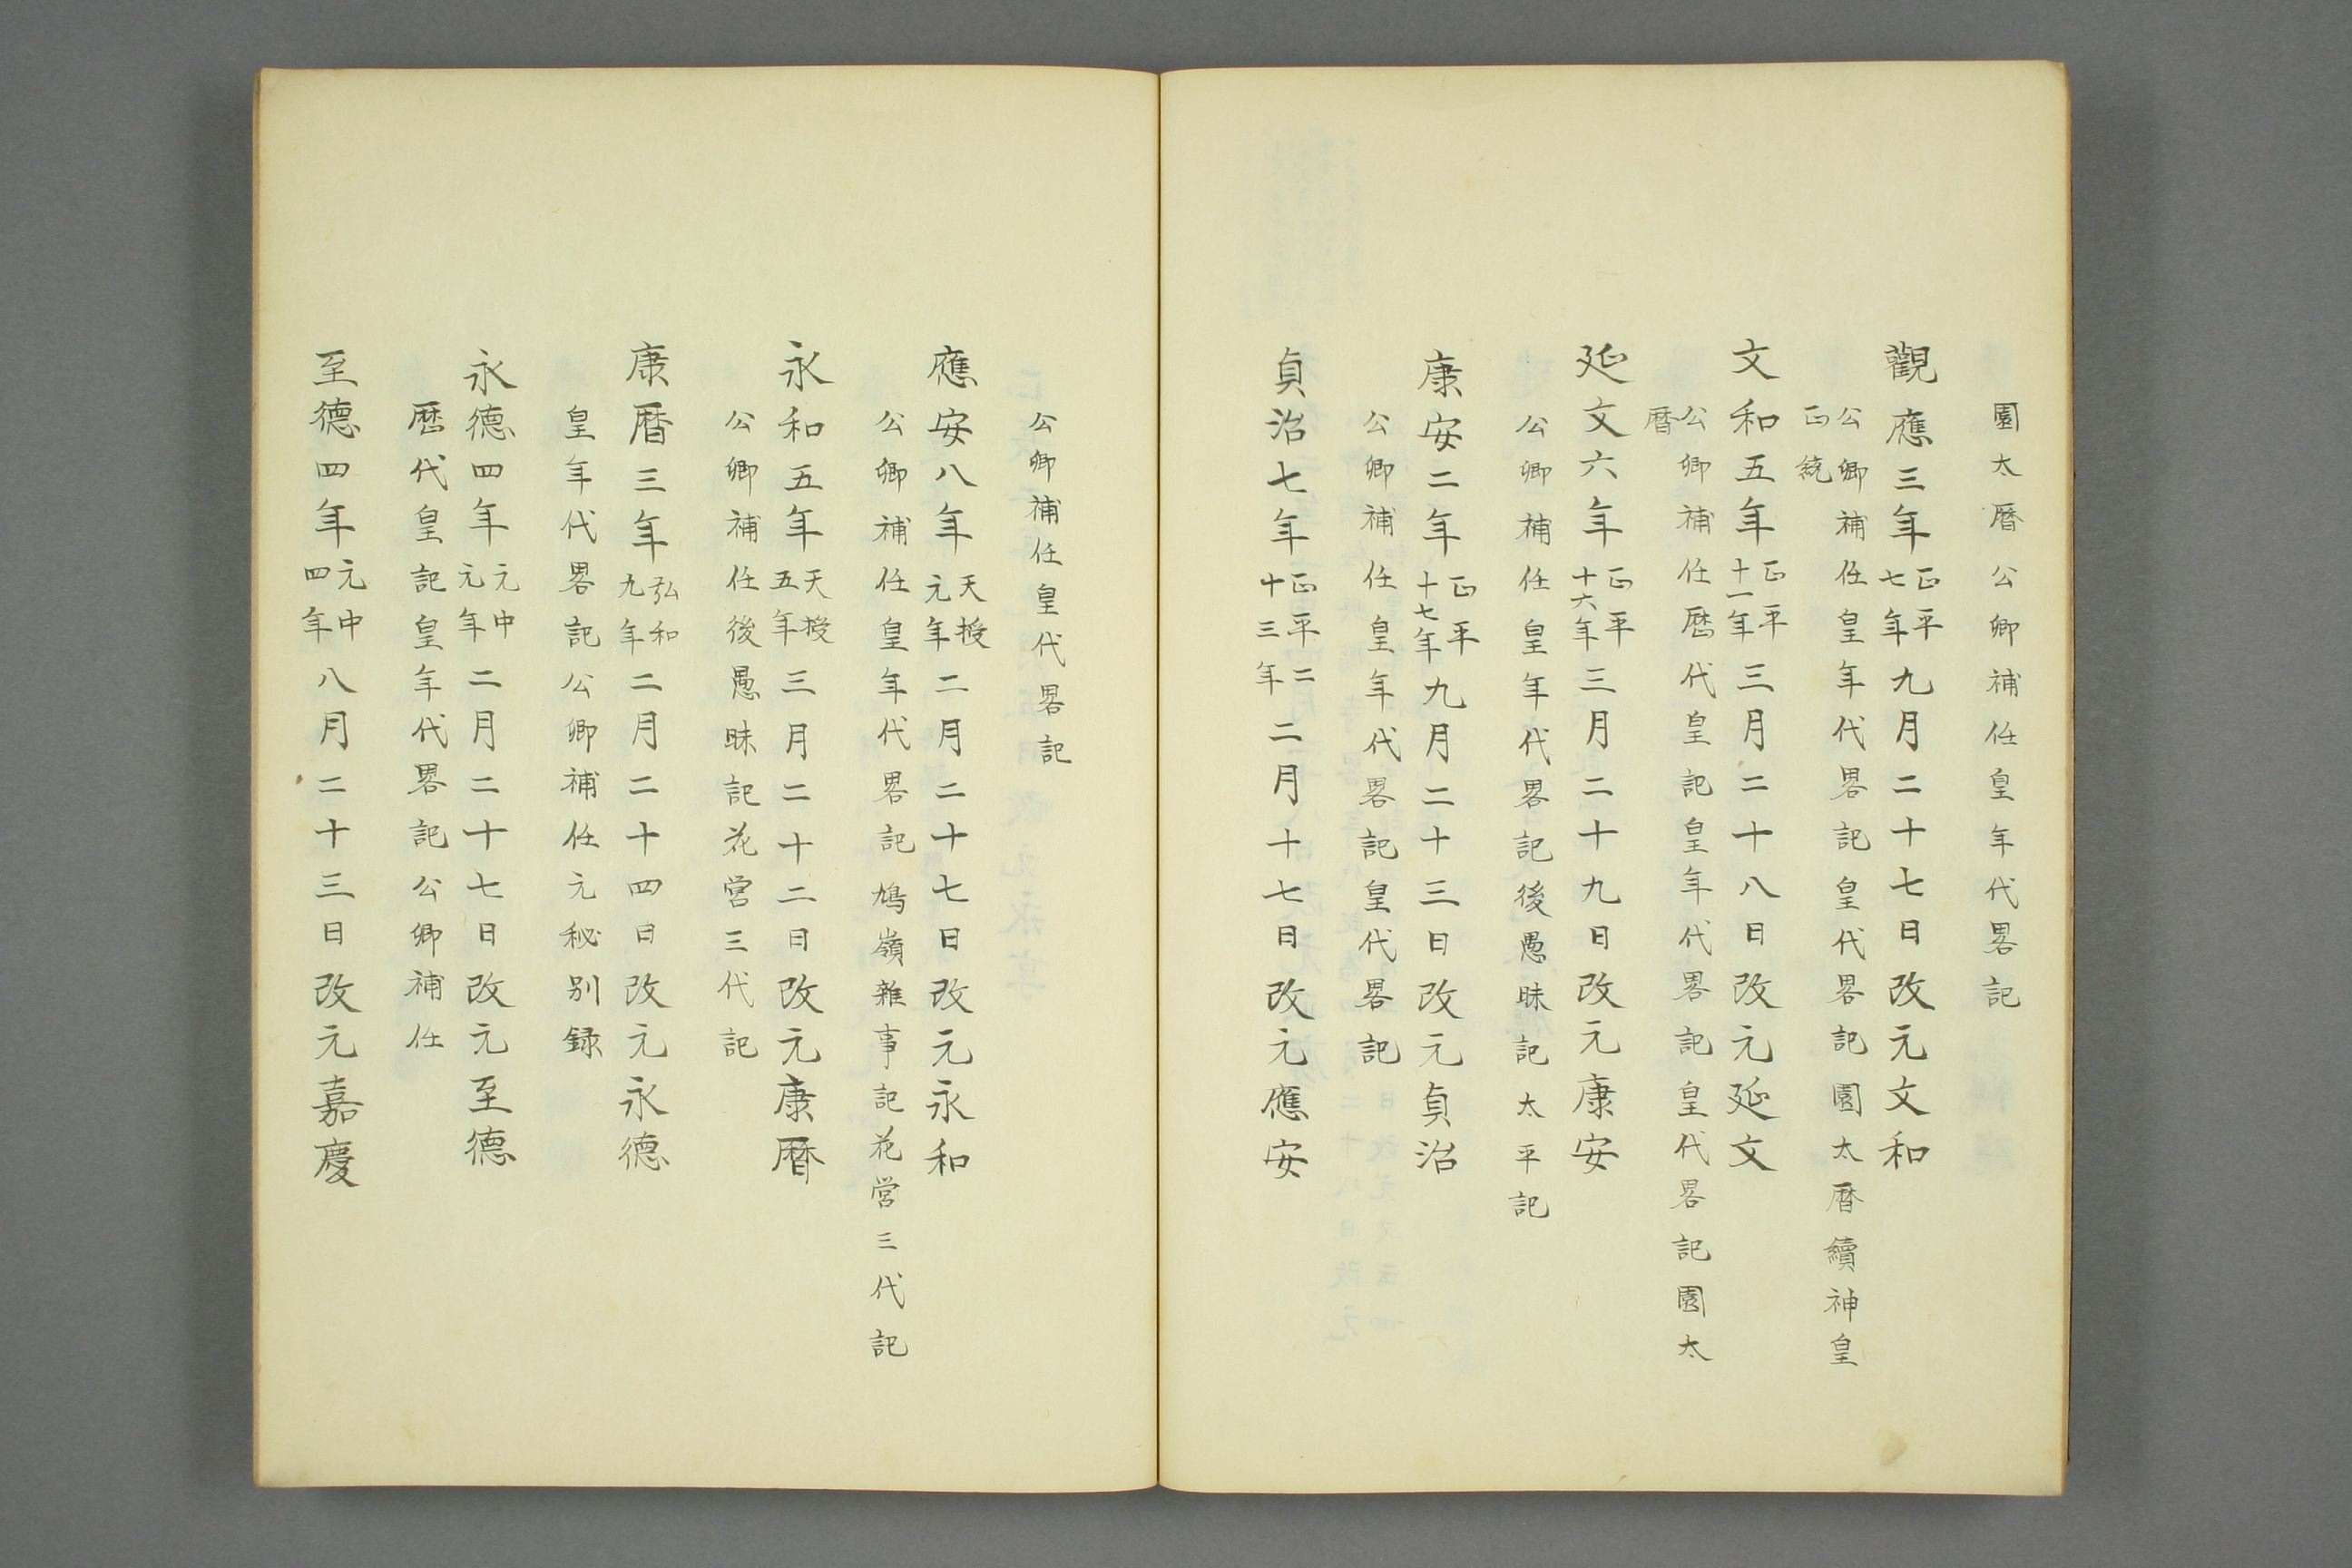 園太暦公卿補任皇年代畧記
觀應三年正平七年九月二十七日改元文和
公卿補任皇年代畧記皇代畧記園太暦續神皇
正統
文和五年正平十一年三月二十八日改元延文
公卿補任歴代皇記皇年代畧記皇代畧記園太
暦
延文六年正平十六年三月二十九日改元康安
公卿補任皇年代畧記後愚昧記太平記
康安二年正平十七年九月二十三日改元貞治
公卿補任皇年代畧記皇代畧記
貞治七年正平二十三年二月十七日改元應安
公卿補任皇代畧記
應安八年天授元年二月二十七日改元永和
公卿補任皇年代畧記鳩嶺雜事記花営三代記
永和五年天授五年三月二十二日改元康暦
公卿補任後愚昧記花営三代記
康暦三年弘和九年二月二十四日改元永德
皇年代畧記公卿補任元秘別録
永德四年元中元年二月二十七日改元至德
歴代皇記皇年代畧記公卿補任
至德四年元中四年八月二十三日改元嘉慶